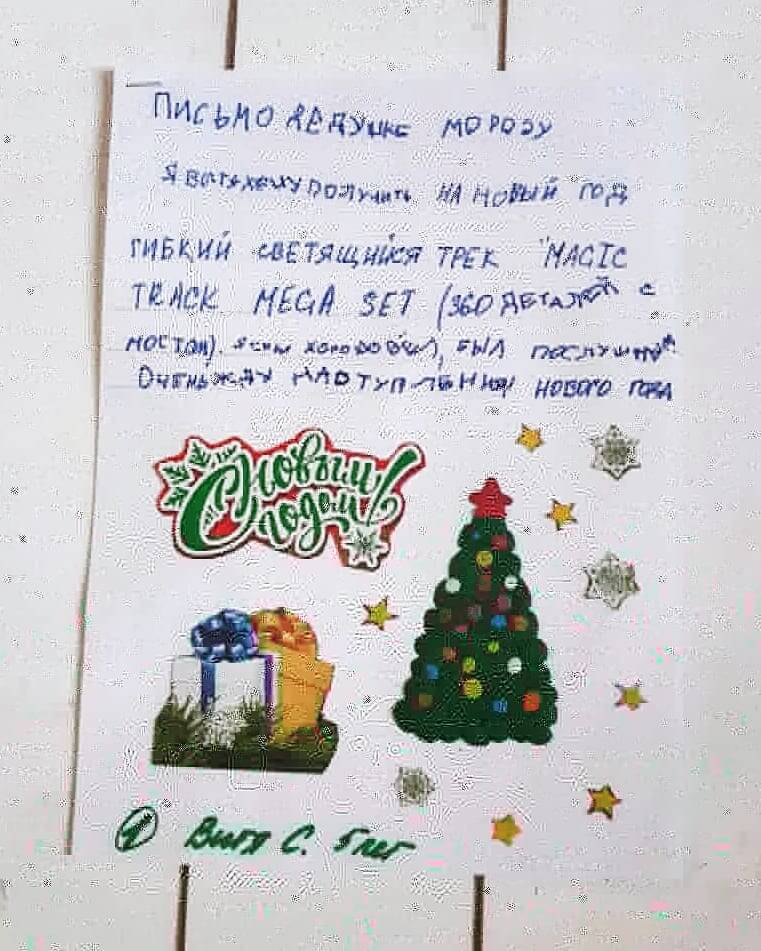 ПИСЬМО ДЕДУШКЕ МОРОЗУ
Я ВИТЯ ХОЧУ ПОЛУЧИТЬ НА НОВЫЙ ГОД
ГИБКИЙ СВЕТЯЩИЙСЯ ТРЕК "MAGIC
TRACK MEGA SET (360 ДЕТАЛЕЙ С
МОСТОМ). БЫЛ ПОСЛУШНЫЙ
ОЧЕНЬ ЖДУ НАСТУПЛЕНИЯ НОВОГО ГОДА
С Новым
годом!
Витя С. 5 лет